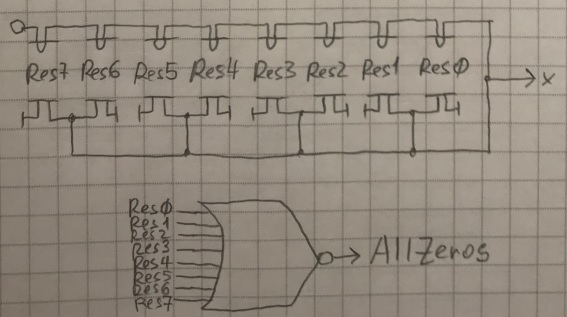 Res7 Res6 Res5 Res4 Res3 Res2 Res1 Resφ
x
Resφ
Res1
Res2
Res3
Res4
Res5
Res6
Res7
AllZeros